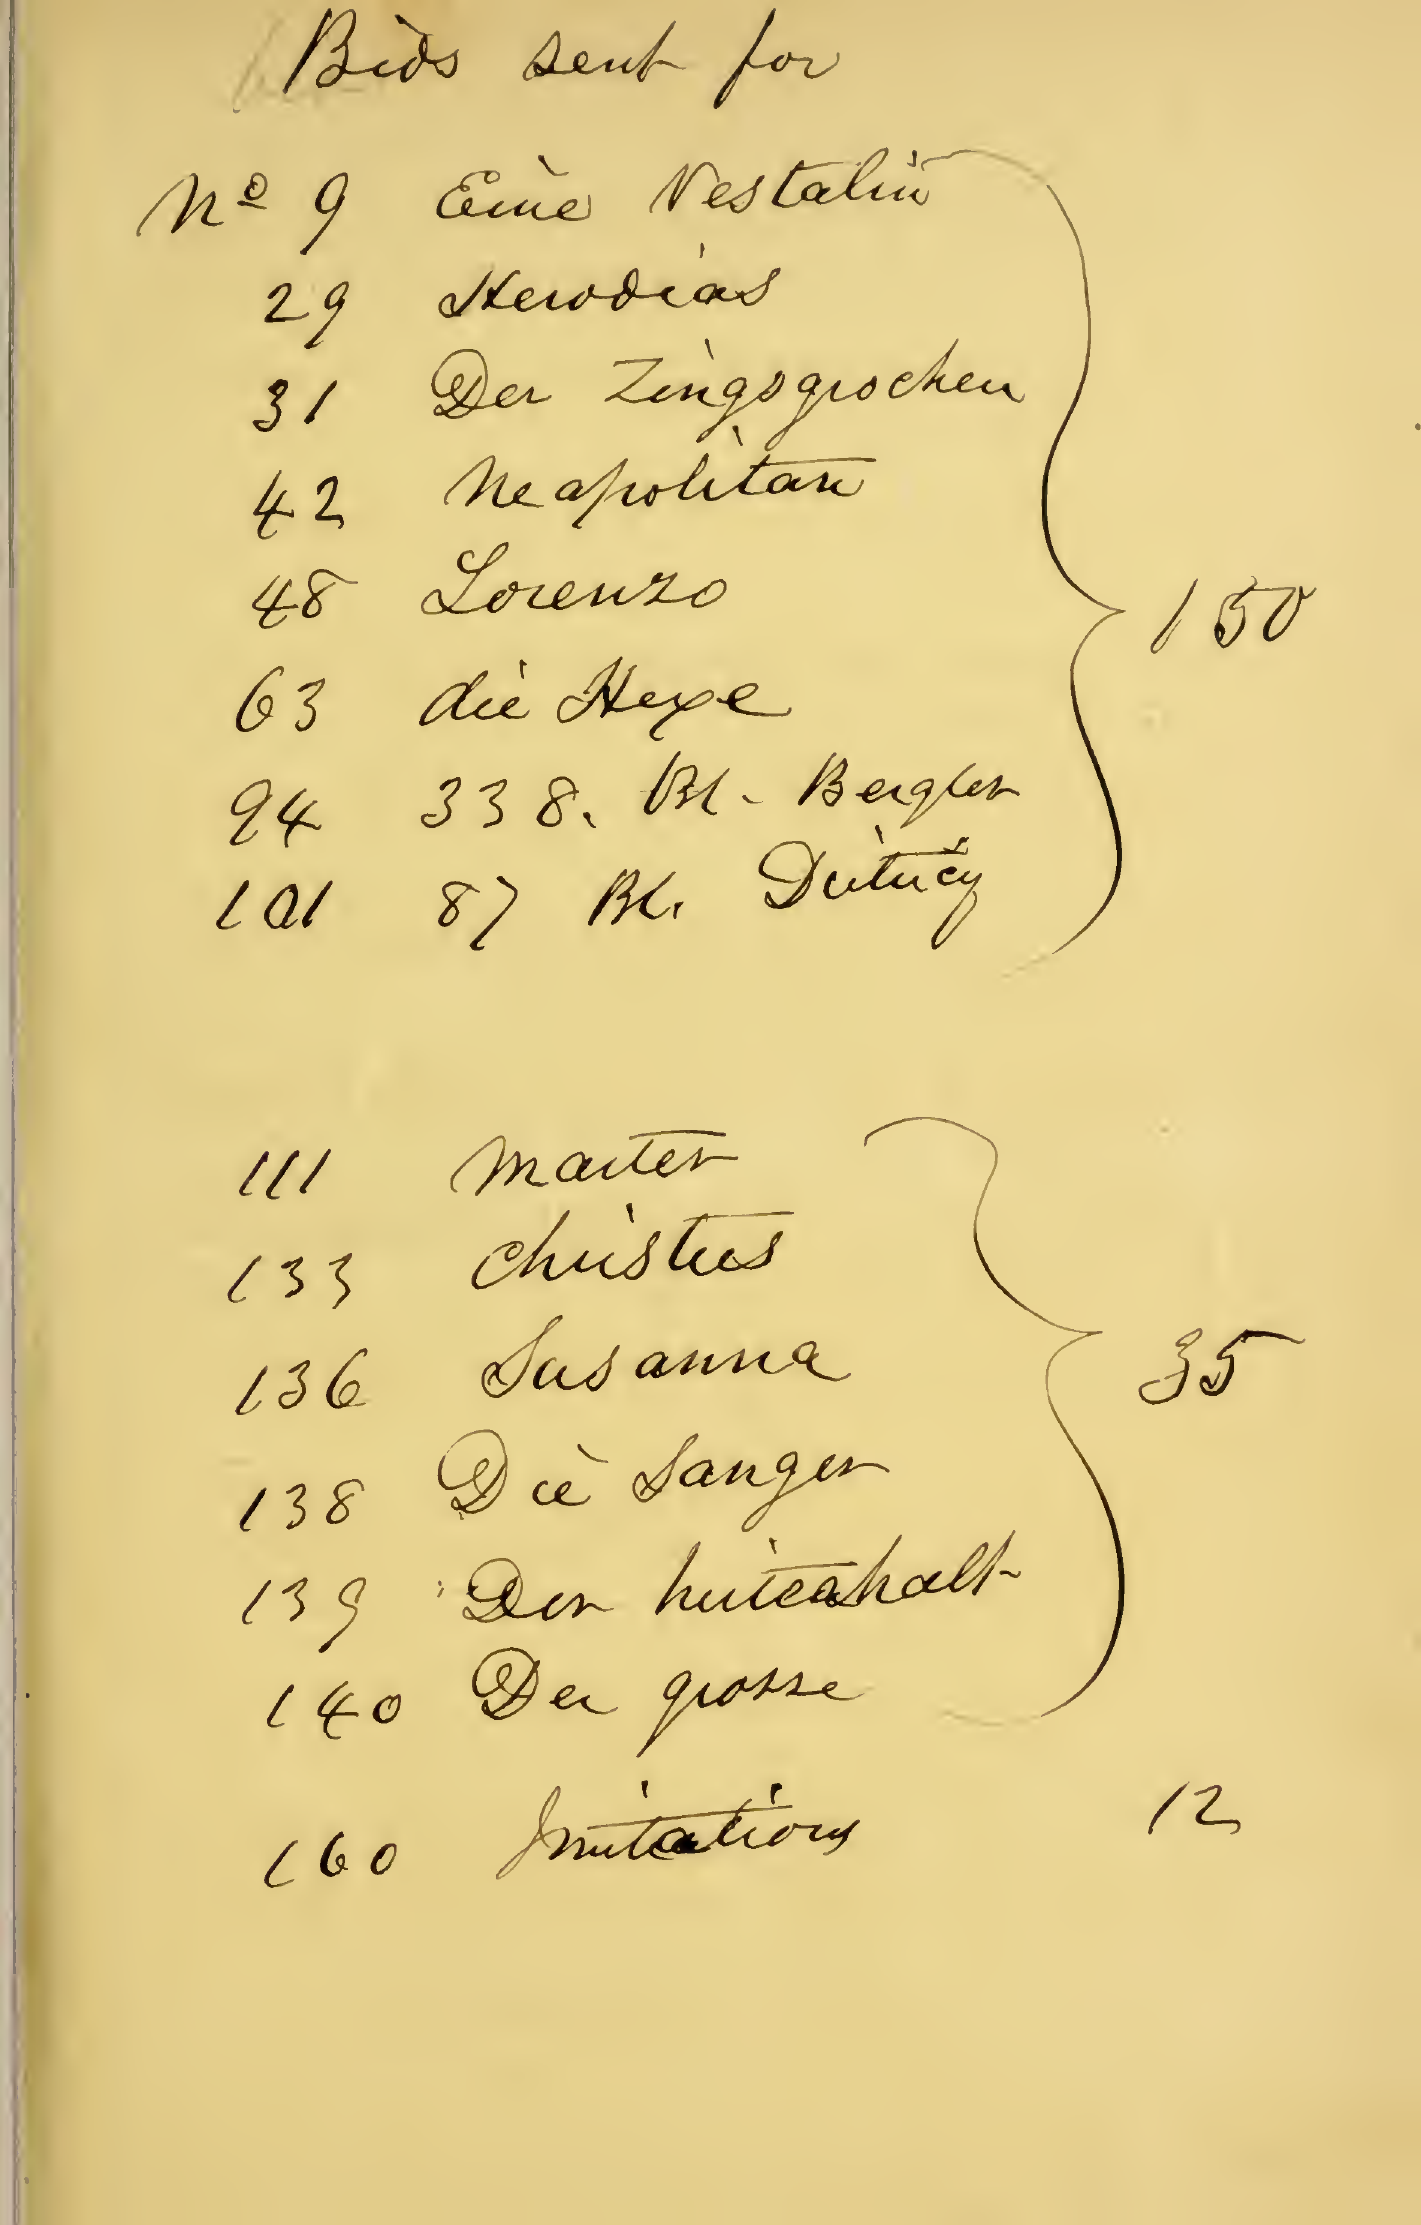 Bids sent for
No 9 Eine Vestalin
29 Herodias
31 Der Zingsgrochen
42 Neapolitan
48 Lorenzo
150
63 die Hexe
94 338. Bl. Bergler
101 87 Bl.
111 Marter
133 Christus
136 Susanna
35
138 Die Sanger
139 Der
140 Der grosse
160 Imitations 12